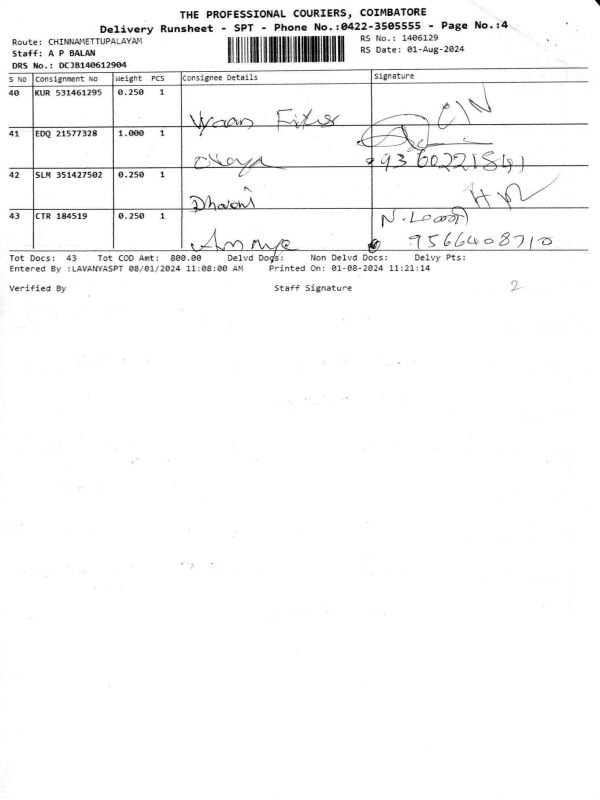 THE PROFESSIONAL COURIERS, COIMBATORE
Delivery Runsheet - SPT - Phone No.:0422-3505555 - Page No.:4
Route: CHINNAMETTUPALAYAM
RS No.: 1406129
Staff: A P BALAN
RS Date: 01-Aug-2024
DRS No.: DCJB140612904
S No Consignment No Weight PCS Consignee Details Signature
40 KUR 531461295 0.250 1
41 EDQ 21577328 1.000 1
42 SLM 351427502 0.250 1
Dharani
43 CTR 184519 0.250 1
9566408710
Tot Docs: 43 Tot COD Amt: 800.00 Delvd Docs: Non Delvd Docs: Delvy Pts:
Entered By :LAVANYASPT 08/01/2024 11:08:00 AM Printed On: 01-08-2024 11:21:14
Verified By Staff Signature 2